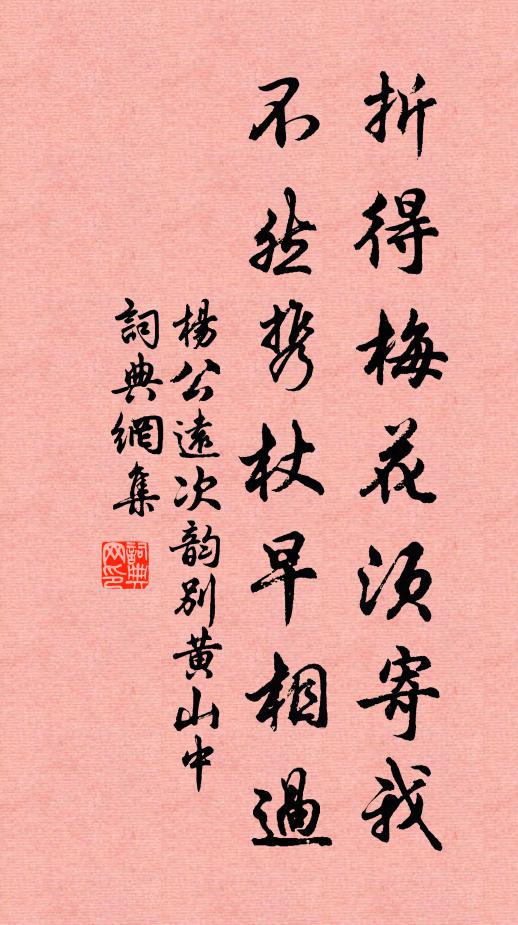 折得梅花須寄我
不然携杖早相過
楊公遠次韵别黄山中
詞典網集
詞典
网印